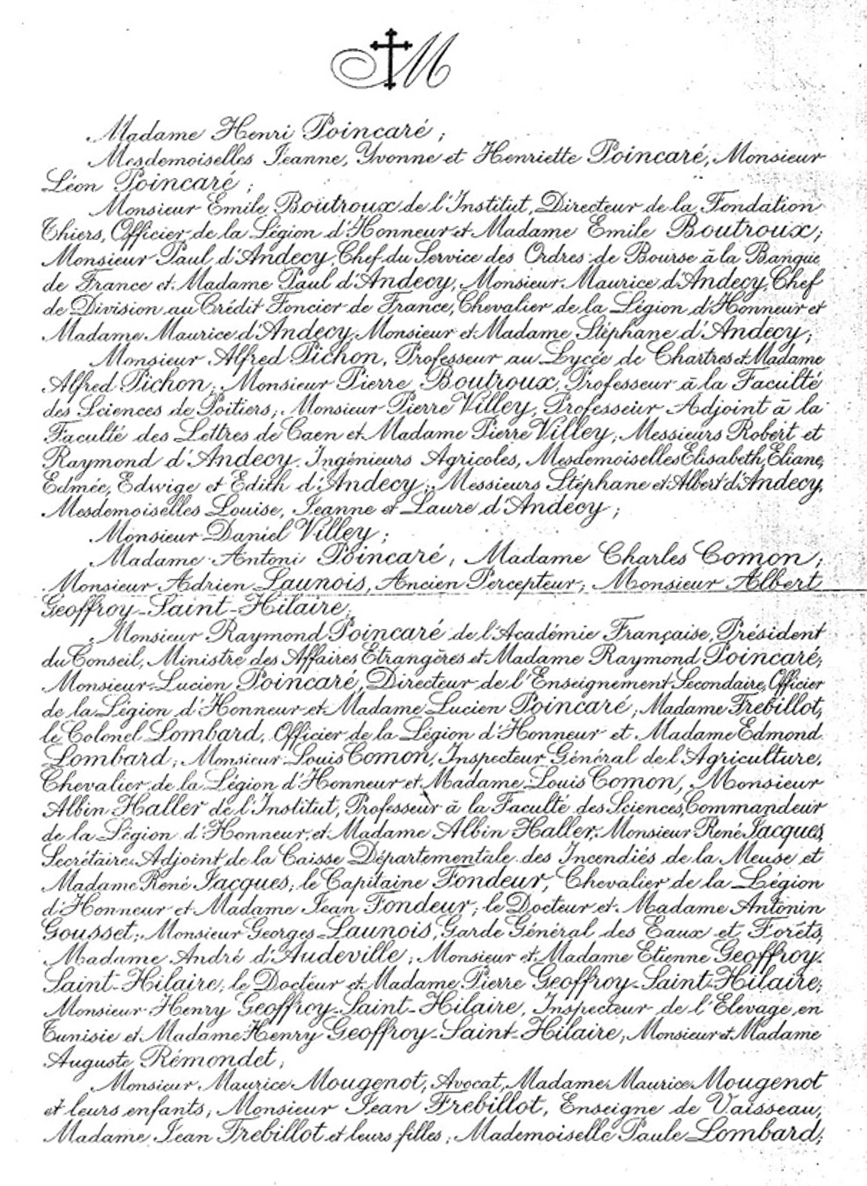 M
Madame Henri Poincaré ;
Mesdemoiselles Jeanne, Yvonne et Henriette Poincaré, Monsieur
Léon Poincaré ;
Monsieur Emile Boutroux de l'Institut, Directeur de la Fondation
Thiers, Officier de la Légion d'Honneur et Madame Emile Boutroux ;
Monsieur Paul d'Andecy, Chef du Service des Ordres de Bourse à la Banque
de France et Madame Paul d'Andecy, Monsieur Maurice d'Andecy, Chef
de Division au Crédit Foncier de France, Chevalier de la Légion d'Honneur et
Madame Maurice d'Andecy, Monsieur et Madame Stéphane d'Andecy ;
Monsieur Alfred Pichon, Professeur au Lycée de Chartres et Madame
Alfred Pichon ; Monsieur Pierre Boutroux, Professeur à la Faculté
des Sciences de Poitiers ; Monsieur Pierre Villey, Professeur Adjoint à la
Faculté des Lettres de Caen et Madame Pierre Villey ; Messieurs Robert et
Raymond d'Andecy, Ingénieurs Agricoles, Mesdemoiselles Elisabeth, Eliane,
Edmée, Edwige et Edith d'Andecy ; Messieurs Stéphane et Albert d'Andecy,
Mesdemoiselles Louise, Jeanne et Laure d'Andecy ;
Monsieur Daniel Villey ;
Madame Antoni Poincaré, Madame Charles Comon ;
Monsieur Adrien Launois, Ancien Percepteur ; Monsieur Albert
Geoffroy-Saint-Hilaire ;
Monsieur Raymond Poincaré de l'Académie Française, Président
du Conseil, Ministre des Affaires Etrangères et Madame Raymond Poincaré,
Monsieur Lucien Poincaré, Directeur de l'Enseignement Secondaire, Officier
de la Légion d'Honneur et Madame Lucien Poincaré ; Madame Frebillot,
le Colonel Lombard, Officier de la Légion d'Honneur et Madame Edmond
Lombard ; Monsieur Louis Comon, Inspecteur Général de l'Agriculture,
Chevalier de la Légion d'Honneur et Madame Louis Comon, Monsieur
Albin Haller de l'Institut, Professeur à la Faculté des Sciences, Commandeur
de la Légion d'Honneur et Madame Albin Haller, Monsieur René Jacques,
Secrétaire-Adjoint de la Caisse Départementale des Incendiés de la Meuse et
Madame René Jacques ; le Capitaine Fondeur, Chevalier de la Légion
d'Honneur et Madame Jean Fondeur ; le Docteur et Madame Antonin
Gousset ; Monsieur Georges Launois, Garde Général des Eaux et Forêts,
Madame André d'Audeville ; Monsieur et Madame Etienne Geoffroy-
Saint-Hilaire, le Docteur et Madame Pierre Geoffroy-Saint-Hilaire ;
Monsieur Henry Geoffroy-Saint-Hilaire, Inspecteur de l'Elevage en
Tunisie et Madame Henry Geoffroy-Saint-Hilaire, Monsieur et Madame
Auguste Rémondet ;
Monsieur Maurice Mougenot, Avocat, Madame Maurice Mougenot
et leurs enfants ; Monsieur Jean Frebillot, Enseigne de Vaisseau,
Madame Jean Frebillot et leurs filles ; Mademoiselle Paule Lombard ;